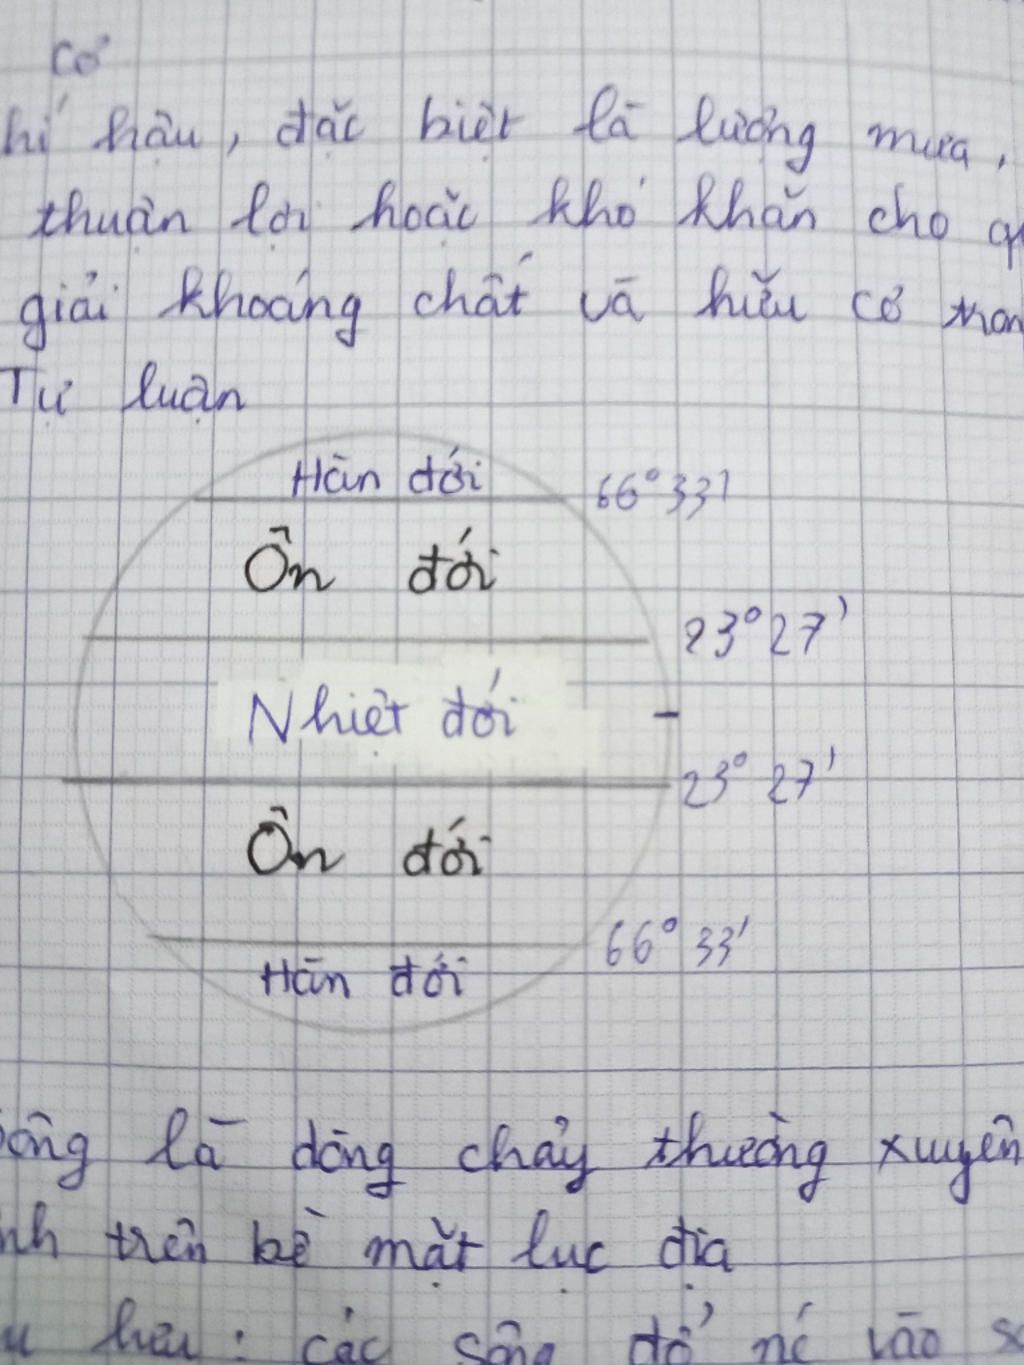 cơ
hí hậu, đặc biệt là lượng mưa,
thuận lợi hoặc khó khăn cho
giải khoáng chất và hữu cơ
Tự luận
Hàn đới 66°33'
Ôn đới
23°27'
Nhiệt đới
23°27'
Ôn đới
66°33'
Hàn đới
là dòng chảy thường xuyên
trên bề mặt lục địa
lưu : các sông đổ nc vào